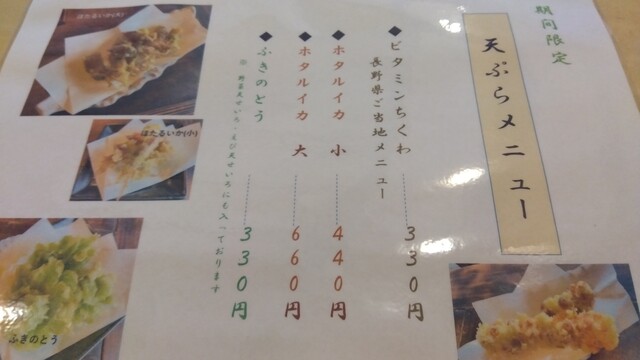 期間限定
天ぷらメニュー
◆ビタミンちくわ 330円
長野県ご当地メニュー
◆ホタルイカ 小 440円
◆ホタルイカ 大 660円
◆ふきのとう 330円
※ 野菜天せいろ・えび天せいろにも入っております
ほたるいか(大)
ほたるいか(小)
ふきのとう